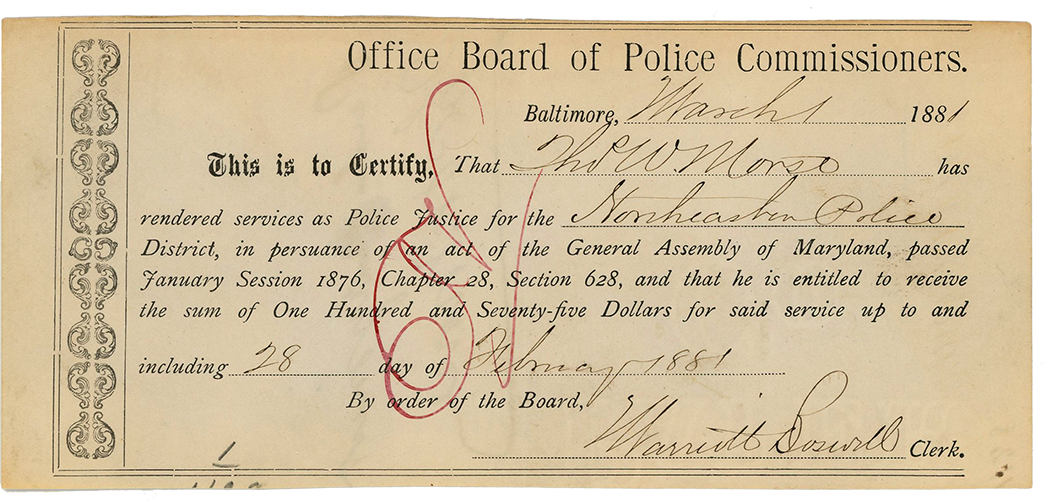 Office Board of Police Commissioners.
Baltimore, March 1 1881
This is to Certify, That Tho W Morse has
rendered services as Police Justice for the Northeastern Police
District, in persuance of an act of the General Assembly of Maryland, passed
January Session 1876, Chapter 28, Section 628, and that he is entitled to receive
the sum of One Hundred and Seventy-five Dollars for said service up to and
including 28 day of February 1881
By order of the Board,
Marriott Boswell Clerk.
1